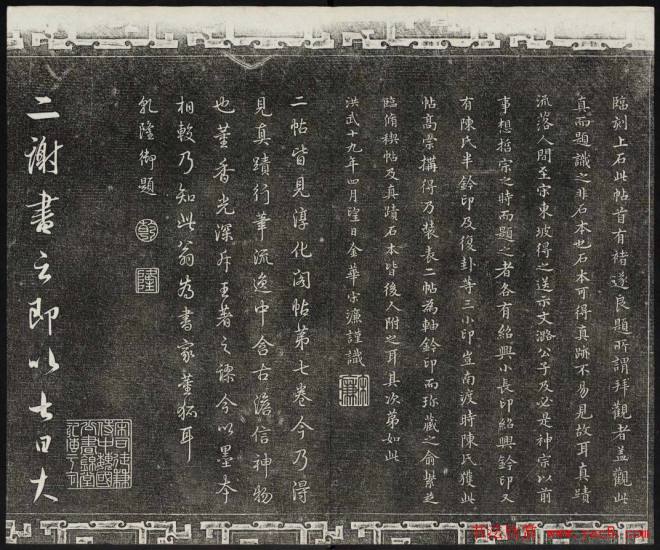 臨刻上石此帖首有褚遂良題所謂拜觀者蓋觀此
真而題識之非石本也石本可得真跡不易見故耳真蹟
流落人間至宋東坡得之送示文潞公子及必是神宗以前
事想哲宗之時而題之者各有紹興小長印紹興鈐印又
有陳氏半鈐印及後卦等三小印豈南渡時陳氏獲此
帖高宗購得乃裝表二帖為軸鈐印而珍藏之俞紫芝
臨脩禊帖及真蹟石本皆後人附之耳其次第如此
洪武十九年四月望日金華宋濂謹識
二帖皆見淳化閣帖第七卷今乃得
見真蹟行筆流逸中含古澹信神物
也董香光深斥王著之謬今以墨本
相較乃知此翁為書家董狐耳
乾隆御題
乾
隆
二謝書云即以七日大
www.yac8.com